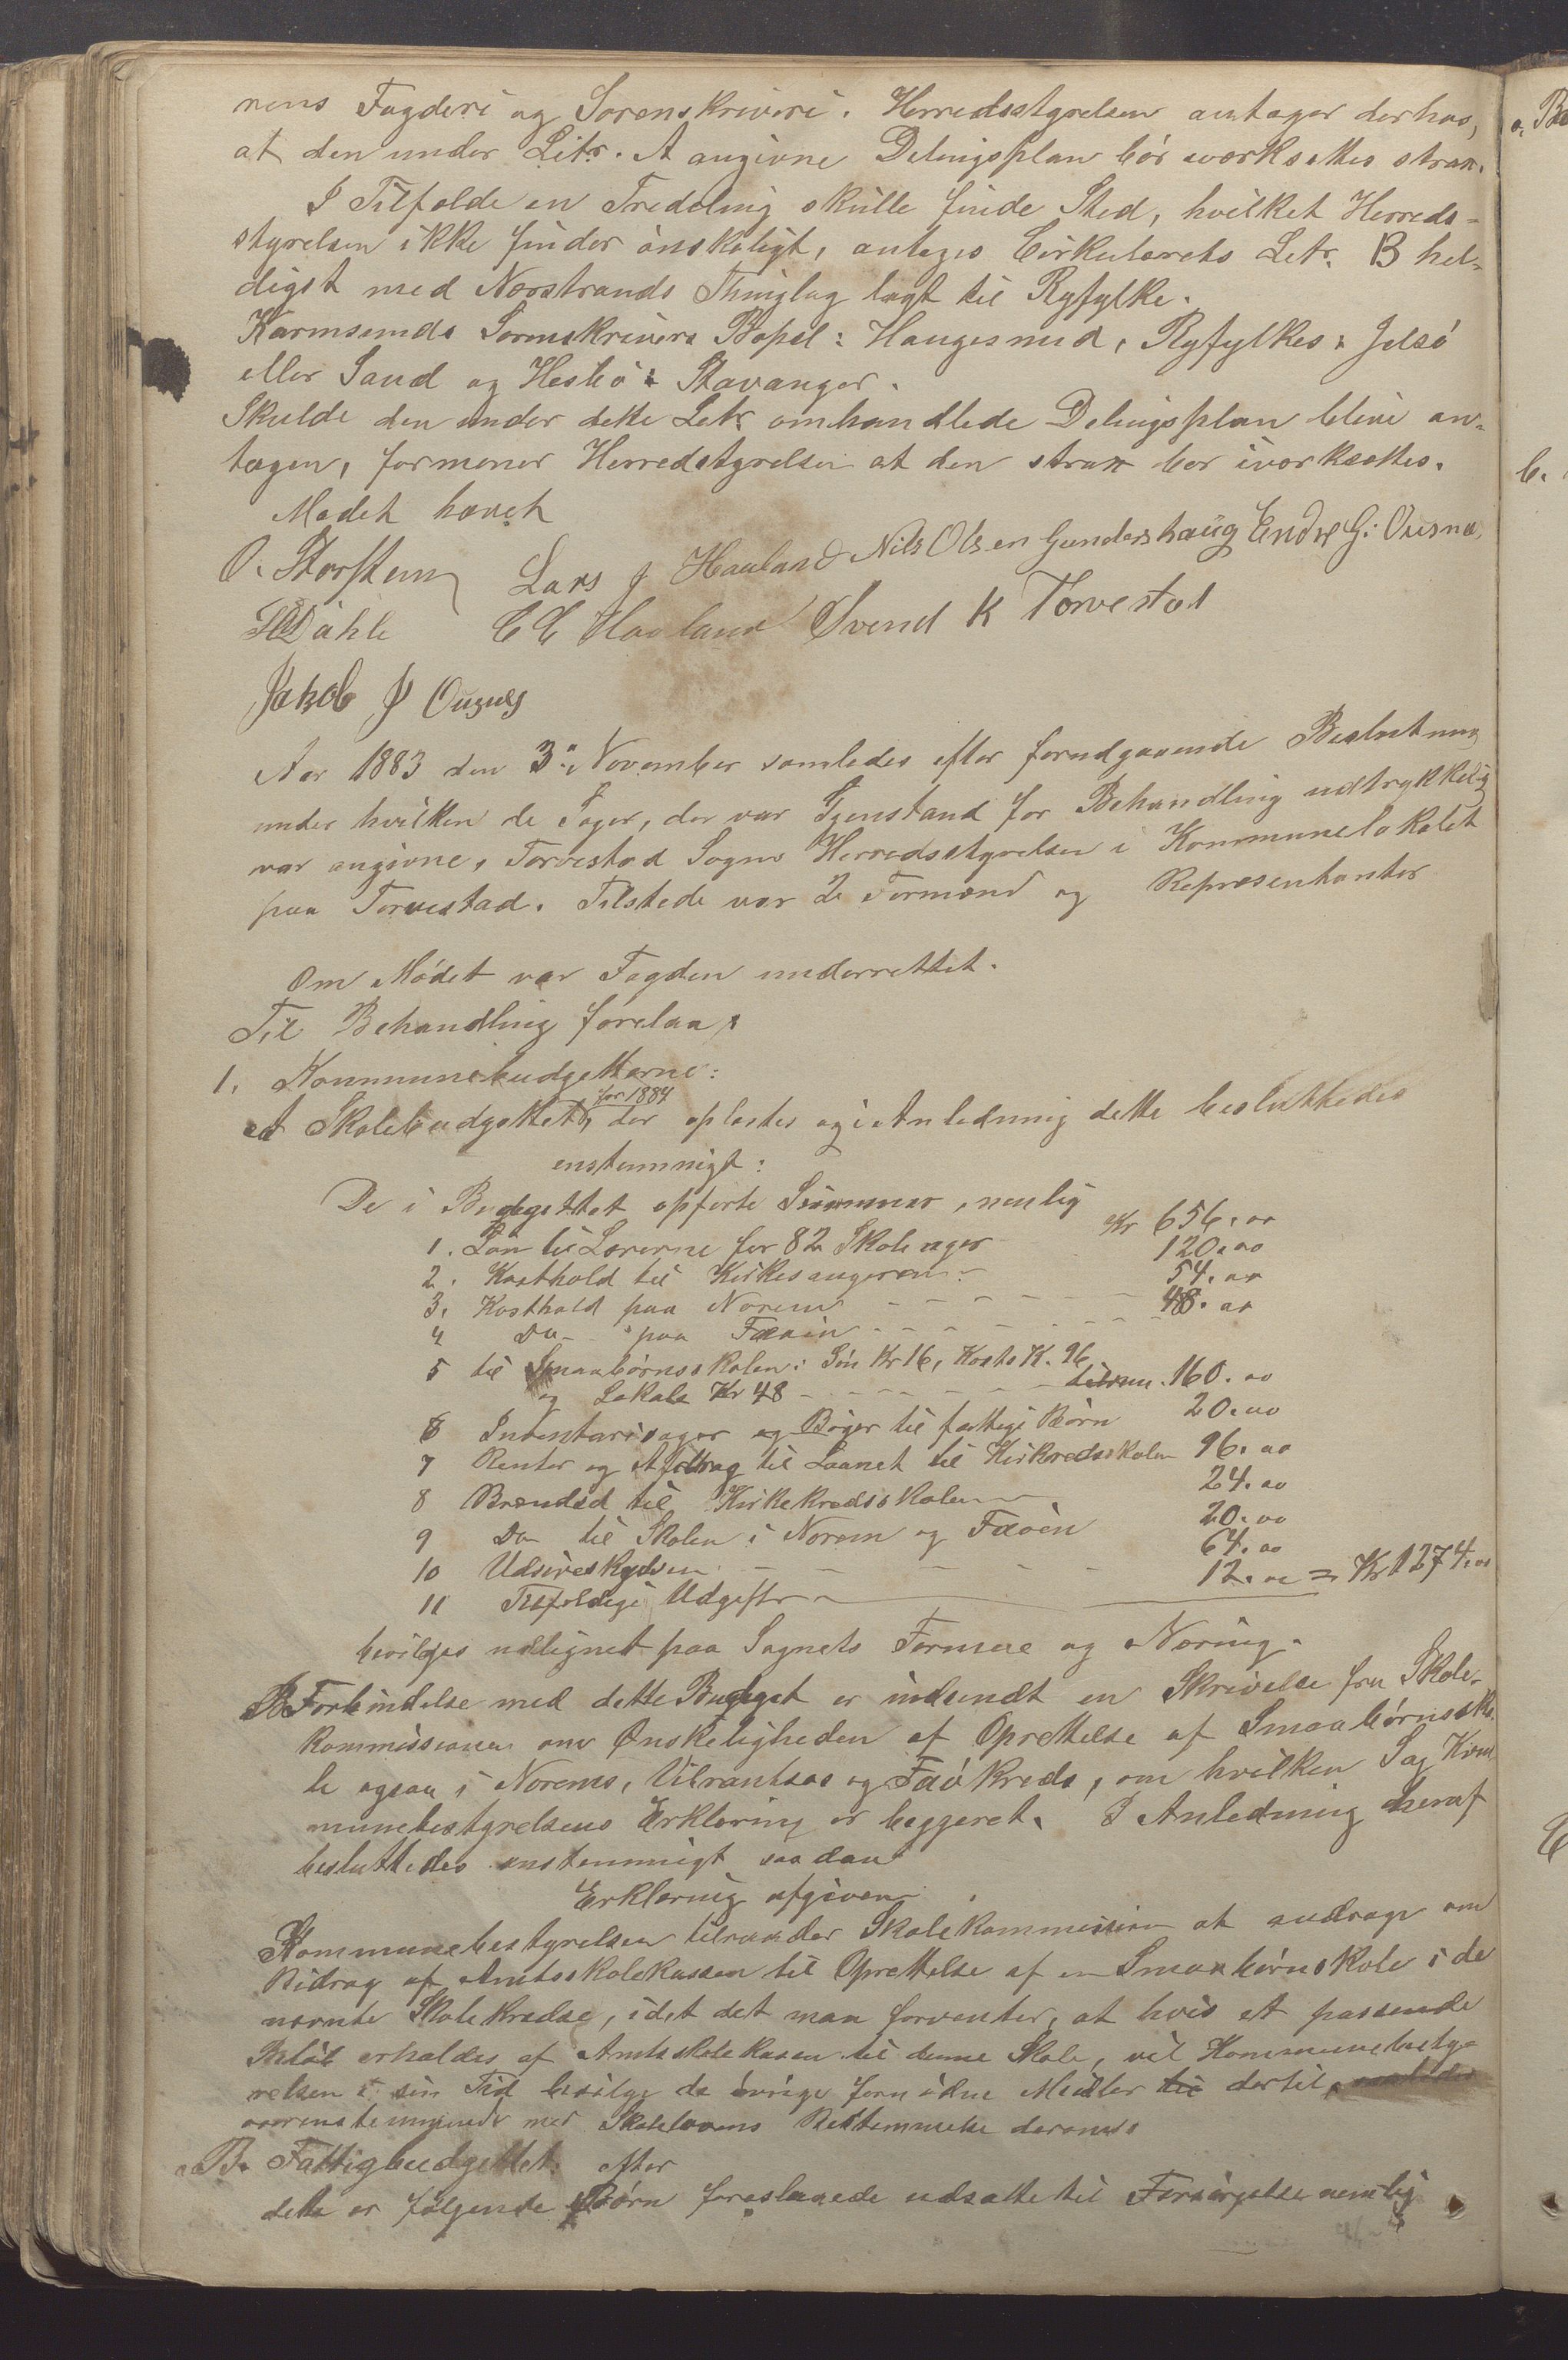 nens Fogderi og Sorenskriveri. Herredsstyrelsen antager derhos,
at den under Litr. A angivne Delingsplan bör iværksættes strax.
I Tilfælde en Tredeling skulle finde Sted, hvilket Herreds-
styrelsen ikke finder önskeligt, antages Cirkulærets Litr. B hel-
digst med Nærstrands Thinglag lagt til Ryfylke.
Karmsunds Sorenskrivers Bopel: Haugesund, Ryfylkes: Jelsö
eller Sand og Hesbö: Stavanger.
Skulde den under dette Litr. omhandlede Delingsplan blive an-
tagen, formener Herredstyrelsen at den strax bör iværksættes.
Mødet hævet
O. Storstein Lars J Hauland Nils Olsen Gundershaug Endre G: Ousnæ,
Dahle E E Havland Svend K Torvestad
Jakob J Ousnes
Aar 1883 den 3. November samledes efter forudgaaende Beslutning
under hvilken de Sager, der var Gjenstand for Behandling udtrykkelig
var angivne, Torvestad Sogns Herredsstyrelse i Kommunelokalet
paa Torvestad. Tilstede var de Formænd og Repræsentanter
Om Mödet var Fogden underrettet.
Til Behandling forelaa:
1. Kommunebudgetterne:
for 1884
A Skolebudgettet, der oplæstes og i Anledning dette besluttedes
enstemmigt:
De i Budgettet opförte Summer, nemlig
1. Lön til Lærerne for 82 Skoleuger Kr 656.00
2. Kosthold til Kirkesangeren - 120.00
3. Kosthold paa Norem - - - - 54.00
4 Do - paa Fæöen - - - - 48.00
5 til Smaabörnsskolen: Lön Kr 16, Kosth K. 96
og Lokale Kr 48 - - - - tilsam. 160.00
6 Inventarisager og Böger til fattige Börn 20.00
7 Renter og Afdrag til Laanet til Kirkekredsskolen 96.00
8 Brændsel til Kirkekredsskolen 24.00
9 Do til Skolen i Norem og Fæöen 20.00
10 Udsireskydsen - - - - 64.00
11 Tilfældige Udgifter 12.00 = Kr 1274.00
bevilges udlignet paa Sognets Formue og Næring.
I Forbindelse med dette Budget er indsendt en Skrivelse fra Skole-
kommissionen om Önskeligheden af Oprettelse af Smaabörnssko-
le ogsaa i Norems, Vibrantsøs og Fæö Kreds, om hvilken Sag Kom
munebestyrelsens Erklæring er beggeret. I Anledning heraf
besluttedes enstemmigt saadan
Erklæring afgiven
Kommunebestyrelsen tilraader Skolekommission at andrage om
Bidrag af Amtsskolekassen til Oprettelse af en Smaabörnskole i de
nævnte Skolekredse, idet det man forventer, at hvis et passende
Belöb erholdes af Amtsskolekassen til denne Skole, vil Kommunebesty-
relsen i sin Tid bevilge de övrige fornödne Midler til dertil,
overenstemmende med Skolelovens Bestemmelse derom.
B. Fattigbudgettet: efter
dette er fölgende Börn foreslaaede udsatte til Forsörgelse nemlig